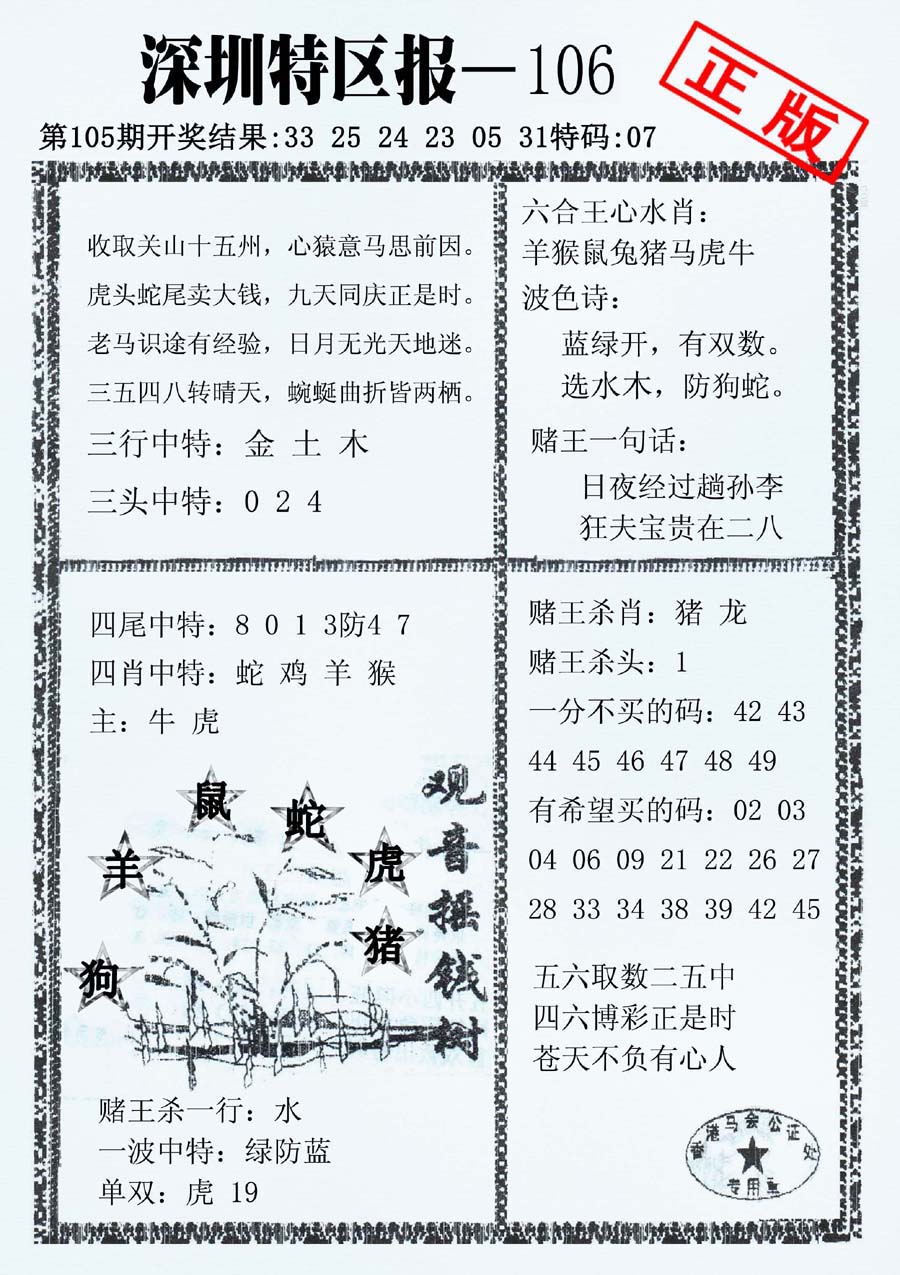 深圳特区报—106
正版
第105期开奖结果:33 25 24 23 05 31特码:07
收取关山十五州，心猿意马思前因。
虎头蛇尾卖大钱，九天同庆正是时。
老马识途有经验，日月无光天地迷。
三五四八转晴天，蜿蜒曲折皆两栖。
三行中特：金 土 木
三头中特：0 2 4
六合王心水肖：
羊猴鼠兔猪马虎牛
波色诗：
蓝绿开，有双数。
选水木，防狗蛇。
赌王一句话：
日夜经过趟孙李
狂夫宝贵在二八
四尾中特：8 0 1 3防4 7
四肖中特：蛇 鸡 羊 猴
主：牛 虎
鼠
蛇
羊
虎
猪
狗
观音摇钱树
赌王杀一行：水
一波中特：绿防蓝
单双：虎 19
赌王杀肖：猪 龙
赌王杀头：1
一分不买的码：42 43
44 45 46 47 48 49
有希望买的码：02 03
04 06 09 21 22 26 27
28 33 34 38 39 42 45
五六取数二五中
四六博彩正是时
苍天不负有心人
香港马会公证处
专用章